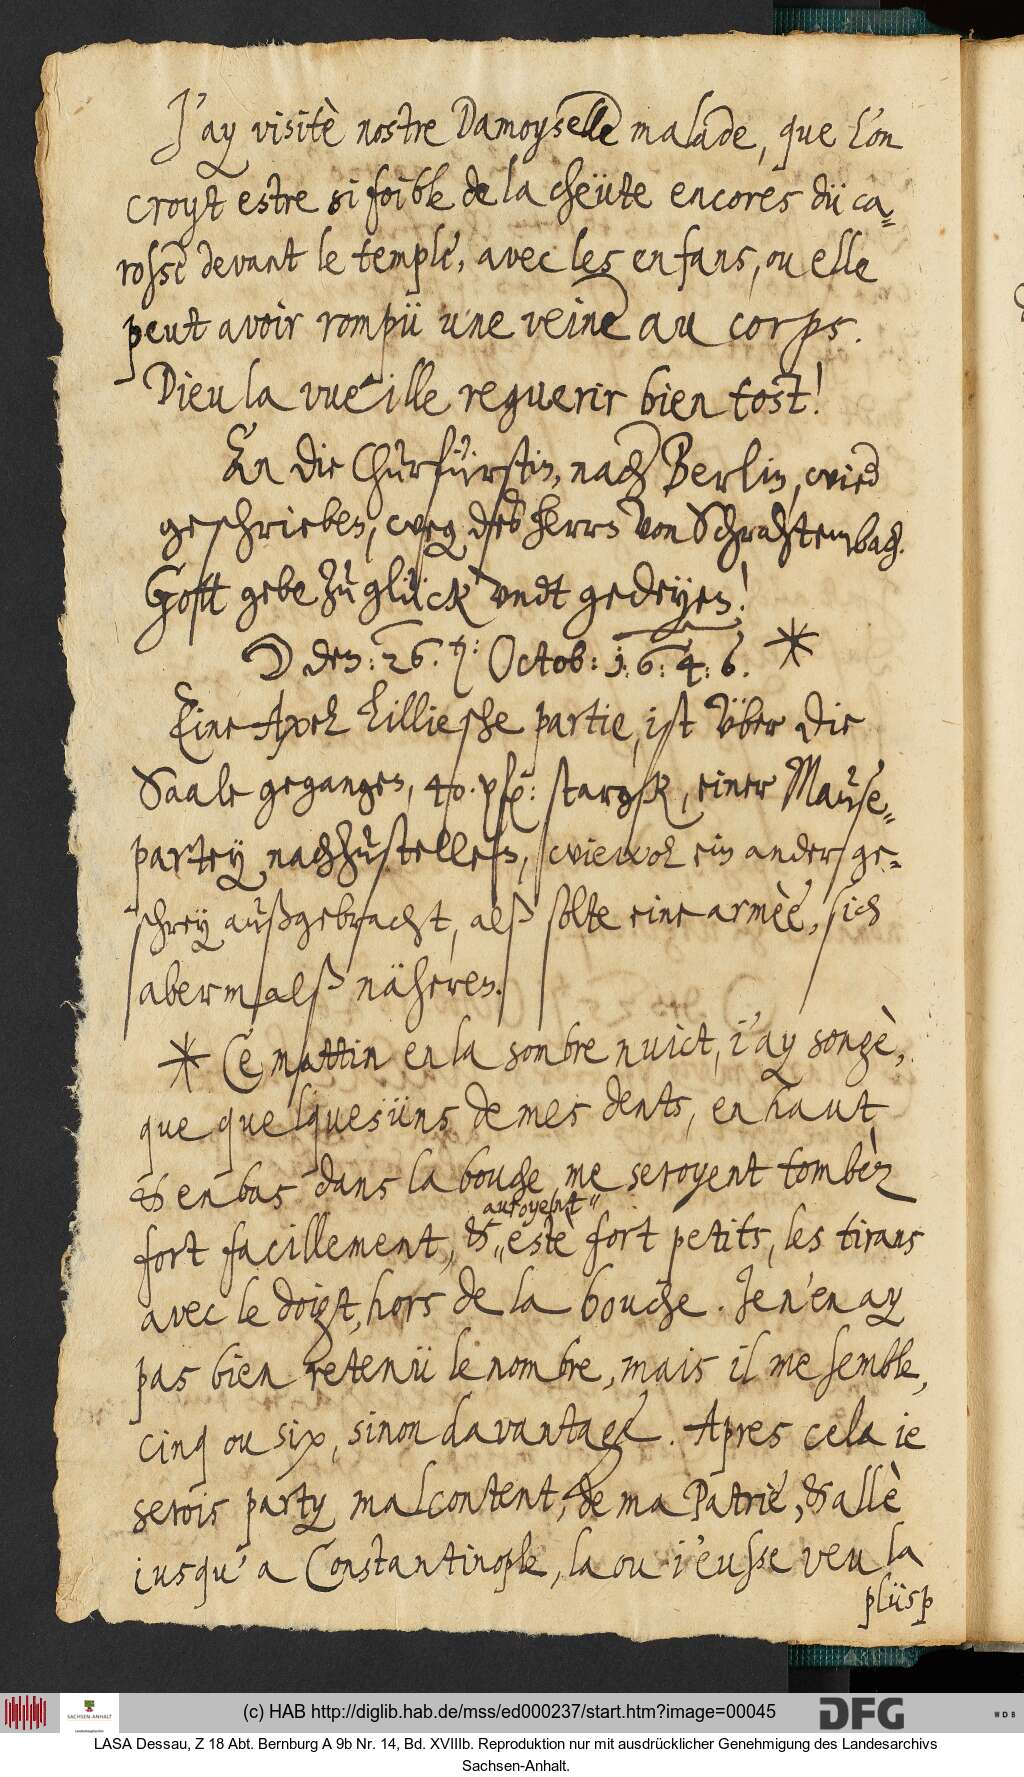 J'ay visitè nostre Damoyselle malade, que l'on
croyt estre si foible de la cheüte encores dü ca-
rosse devant le temple, avec les enfans, ou elle
peut avoir rompü une veine au corps.
Dieu la vueille reguerir bien tost!
An die Churfürstin, nach Berlin, wied
geschrieben, weg. des Herrn von Schrahtembach.
Gott gebe zu glück undt gedeyen!
☽ den: 26. Octob: 1: 6: 4: 6. *
Eine Axel Lilliesche partie, ist über die
Saale gegangen, 40. pf: stargk, einer Mause-
partey nachzustellen, wiewol ein ander ge-
schrey außgebracht, alß solte eine armèe, sich
abermalß näheren.
* Ce mattin en la sombre nuict, i'ay songè,
que quelquesüns de mes dents, en haut
& en bas dans la bouche me seroyent tombèz
auroyent
fort facillement, & estè fort petits, les tirans
avec le doigt, hors de la bouche. Je n'en ay
pas bien retenü le nombre, mais il me semble,
cinq ou six, sinon davantage. Apres cela ie
serois party malcontent, de ma Patrie, & allè
iusqu'a Constantinople, la ou i'eusse veu la
plüsp
(c) HAB http://diglib.hab.de/mss/ed000237/start.htm?image=00045
SACHSEN-ANHALT
DFG
WDB
LASA Dessau, Z 18 Abt. Bernburg A 9b Nr. 14, Bd. XVIIIb. Reproduktion nur mit ausdrücklicher Genehmigung des Landesarchivs
Sachsen-Anhalt.